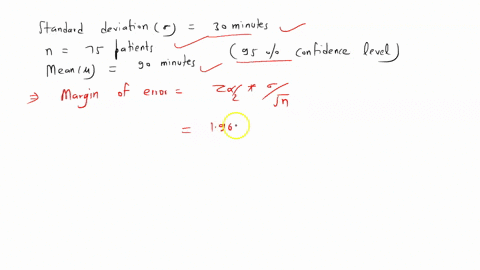 Standard deviation (σ) = 30 minutes ✓
n = 75 patients ✓ (95 % confidence level)
Mean (μ) = 90 minutes ✓
⇒ Margin of error = Zα/2 * σ/√n
= 1.96